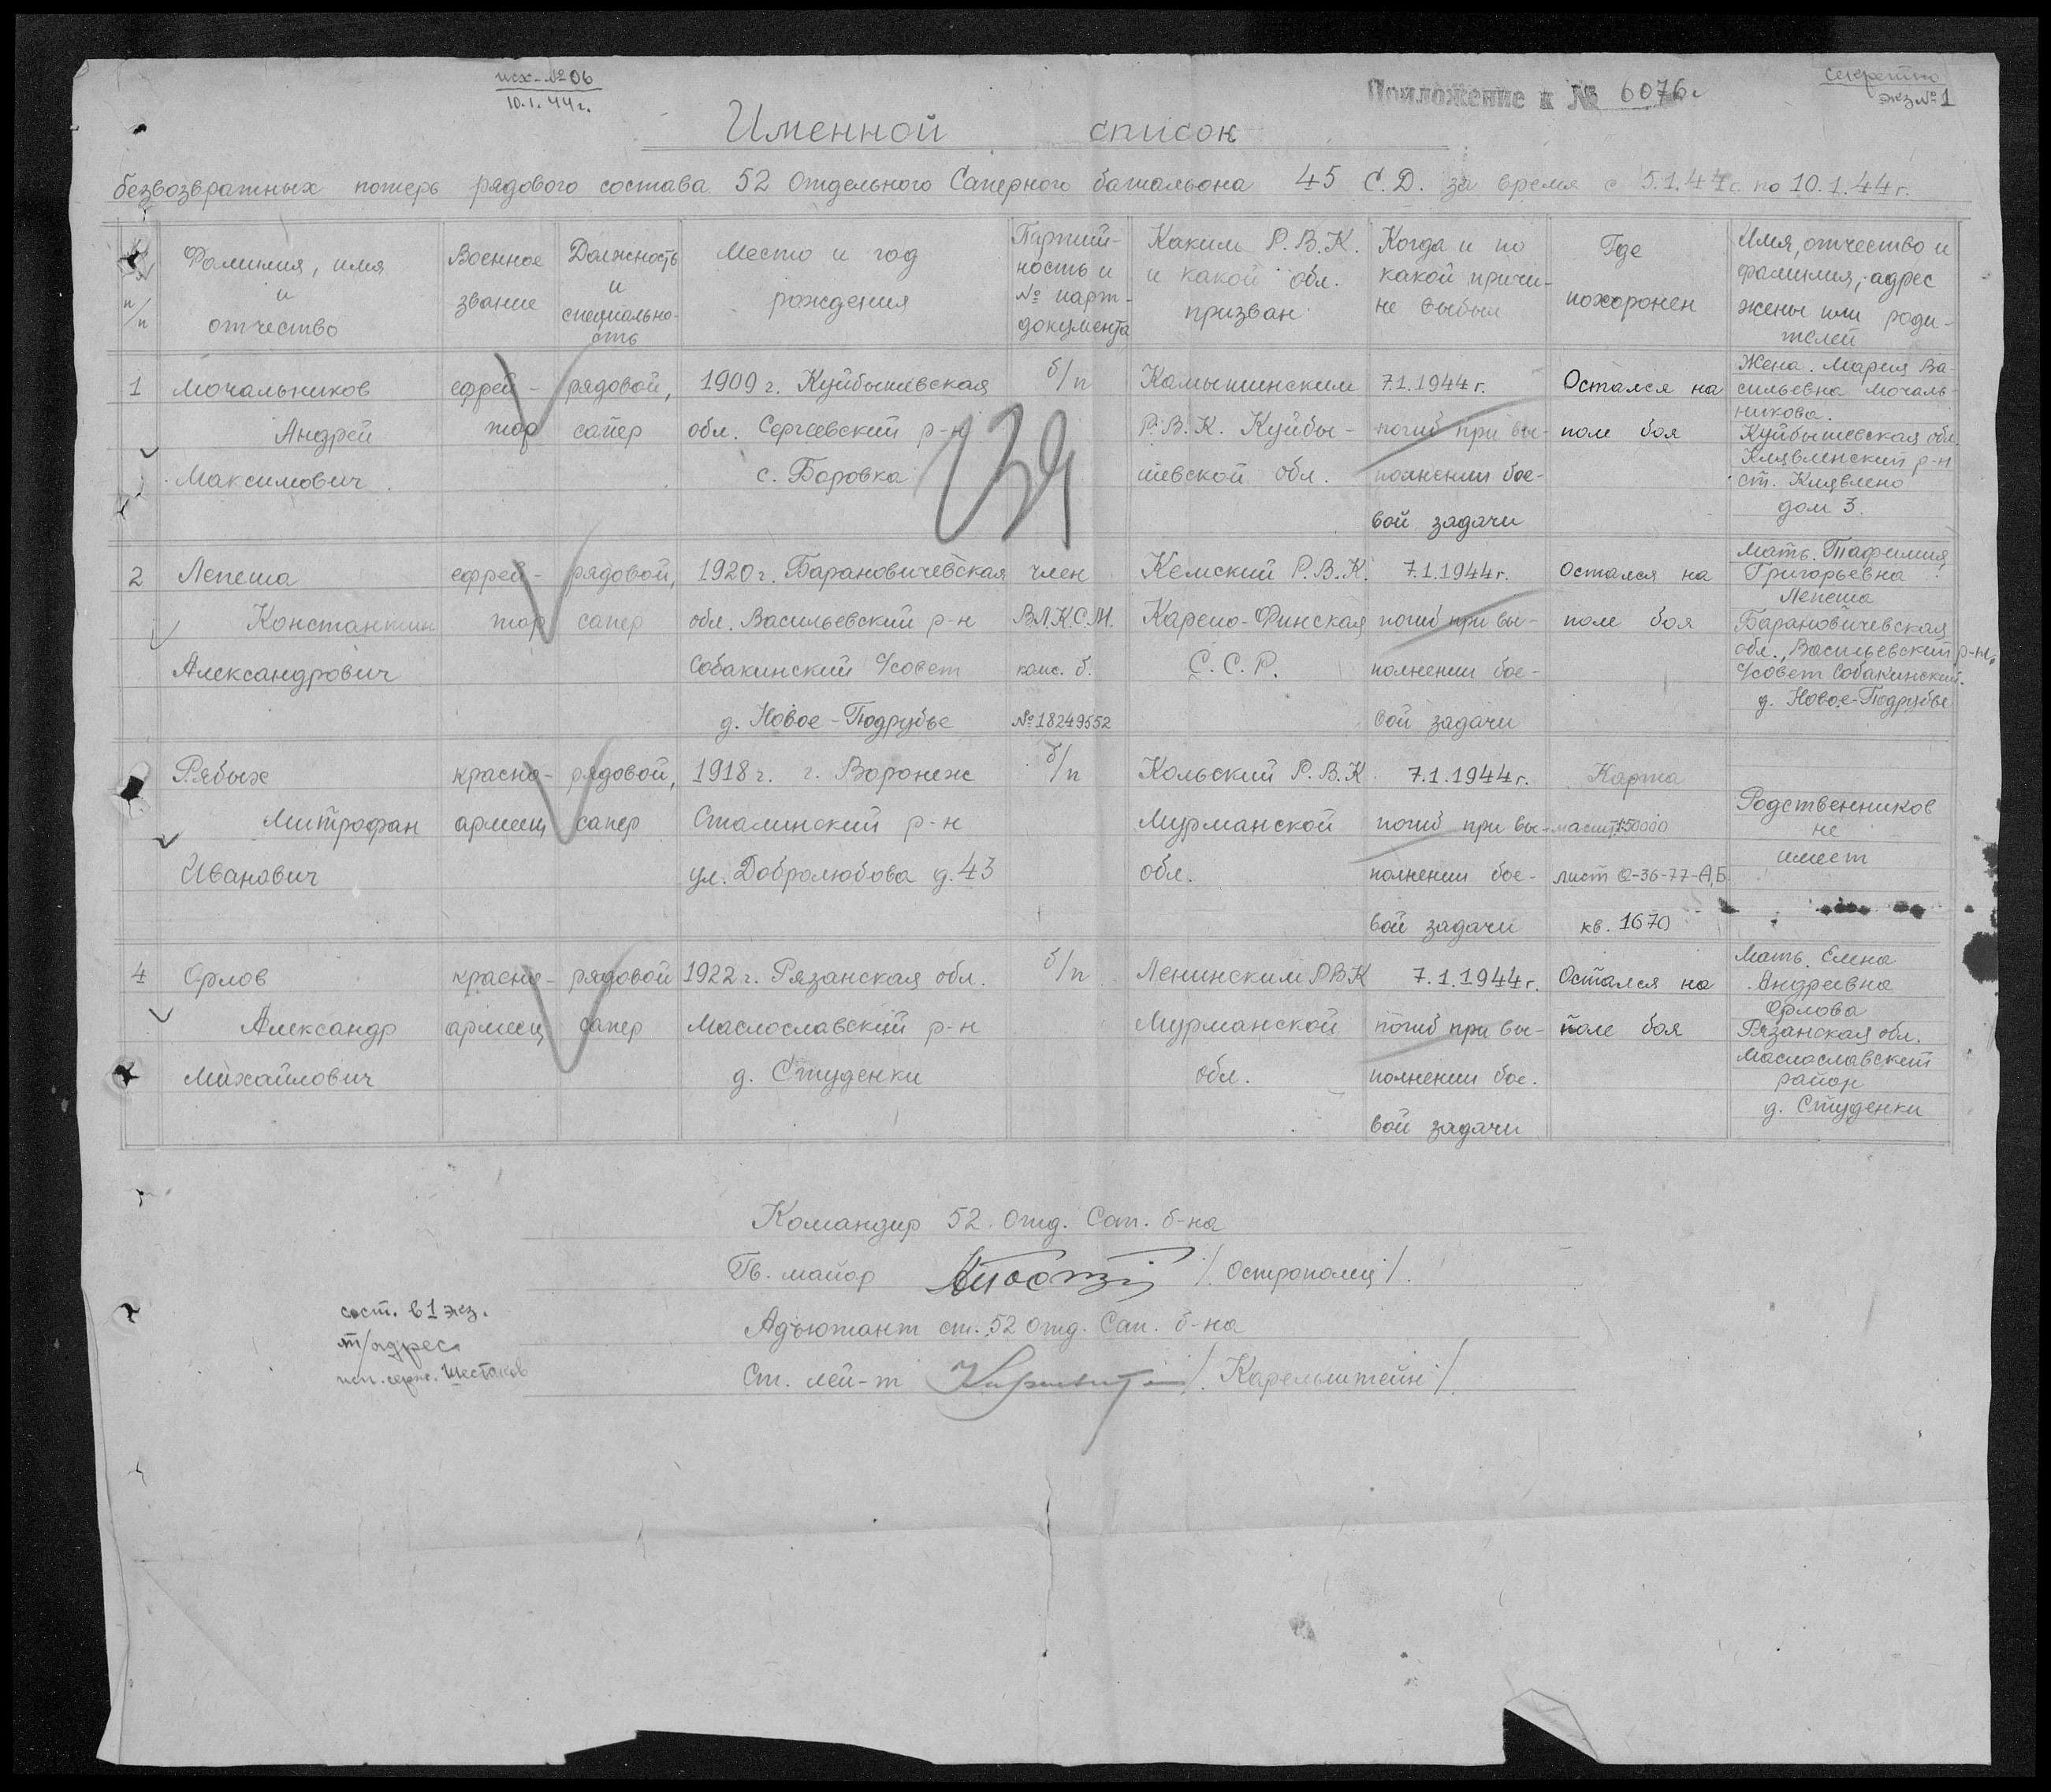 исх-№06
10.1.44г.
Приложение к № 6076с
Секретно
экз №1
Именной список
безвозвратных потерь рядового состава 52 Отдельного Саперного батальона 45 С.Д. за время с 5.1.44г. по 10.1.44г.
№ п/п
Фамилия, имя
и
отчество
Военное
звание
Должность
и
специально-
сть
Место и год
рождения
Партий-
ность и
№ парт-
документа
Каким Р.В.К.
и какой обл.
призван
Когда и по
какой причи-
не выбыл
Где
похоронен
Имя, отчество и
фамилия, адрес
жены или роди-
телей
1
Мочальников
Андрей
Максимович
ефрей-
тор
рядовой,
сапер
1909 г. Куйбышевская
обл. Сергеевский р-н
с. Боровка
б/п
Камышинским
Р.В.К. Куйбы-
шевской обл.
7.1.1944г.
погиб при вы-
полнении бое-
вой задачи
Остался на
поле боя
Жена. Мария Ва-
сильевна Мочаль-
никова.
Куйбышевская обл.
Клявленский р-н
ст. Клявлено
дом 3.
2
Лепеша
Константин
Александрович
ефрей-
тор
рядовой,
сапер
1920г. Барановичевская
обл. Васильевский р-н
Собакинский с/совет
д. Новое-Подрубье
член
В.Л.К.С.М.
комс. б.
№18249552
Кемский Р.В.К.
Карело-Финская
С.С.Р.
7.1.1944г.
погиб при вы-
полнении бое-
вой задачи
Остался на
поле боя
Мать.
Григорьевна
Лепеша
Барановичевская
обл., Васильевский р-н,
с/совет Собакинский.
д. Новое-Подрубье
Рябых
Митрофан
Иванович
красно-
армеец
рядовой,
сапер
1918г. г. Воронеж
Сталинский р-н
ул. Добролюбова д. 43
б/п
Кольский Р.В.К.
Мурманской
обл.
7.1.1944г.
погиб при вы-
полнении бое-
вой задачи
Карта
масшт. 1:50000
лист Q-36-77-А,Б.
кв. 1670
Родственников
не
имеет
4
Орлов
Александр
Михайлович
красно-
армеец
рядовой
сапер
1922г. Рязанская обл.
Маслославский р-н
д. Студенки
б/п
Ленинским РВК
Мурманской
обл.
7.1.1944г.
погиб при вы-
полнении бое-
вой задачи
Остался на
поле боя
Мать. Елена
Андреевна
Орлова
Рязанская обл.
Маслославский
район
д. Студенки
Командир 52. Отд. Сап. б-на
Гв. майор /Острополец/.
Адъютант ст. 52 Отд. Сап. б-на
Ст. лей-т /Карельштейн/.
сост. в 1 экз.
т/адрес
исп. серж. Шестаков